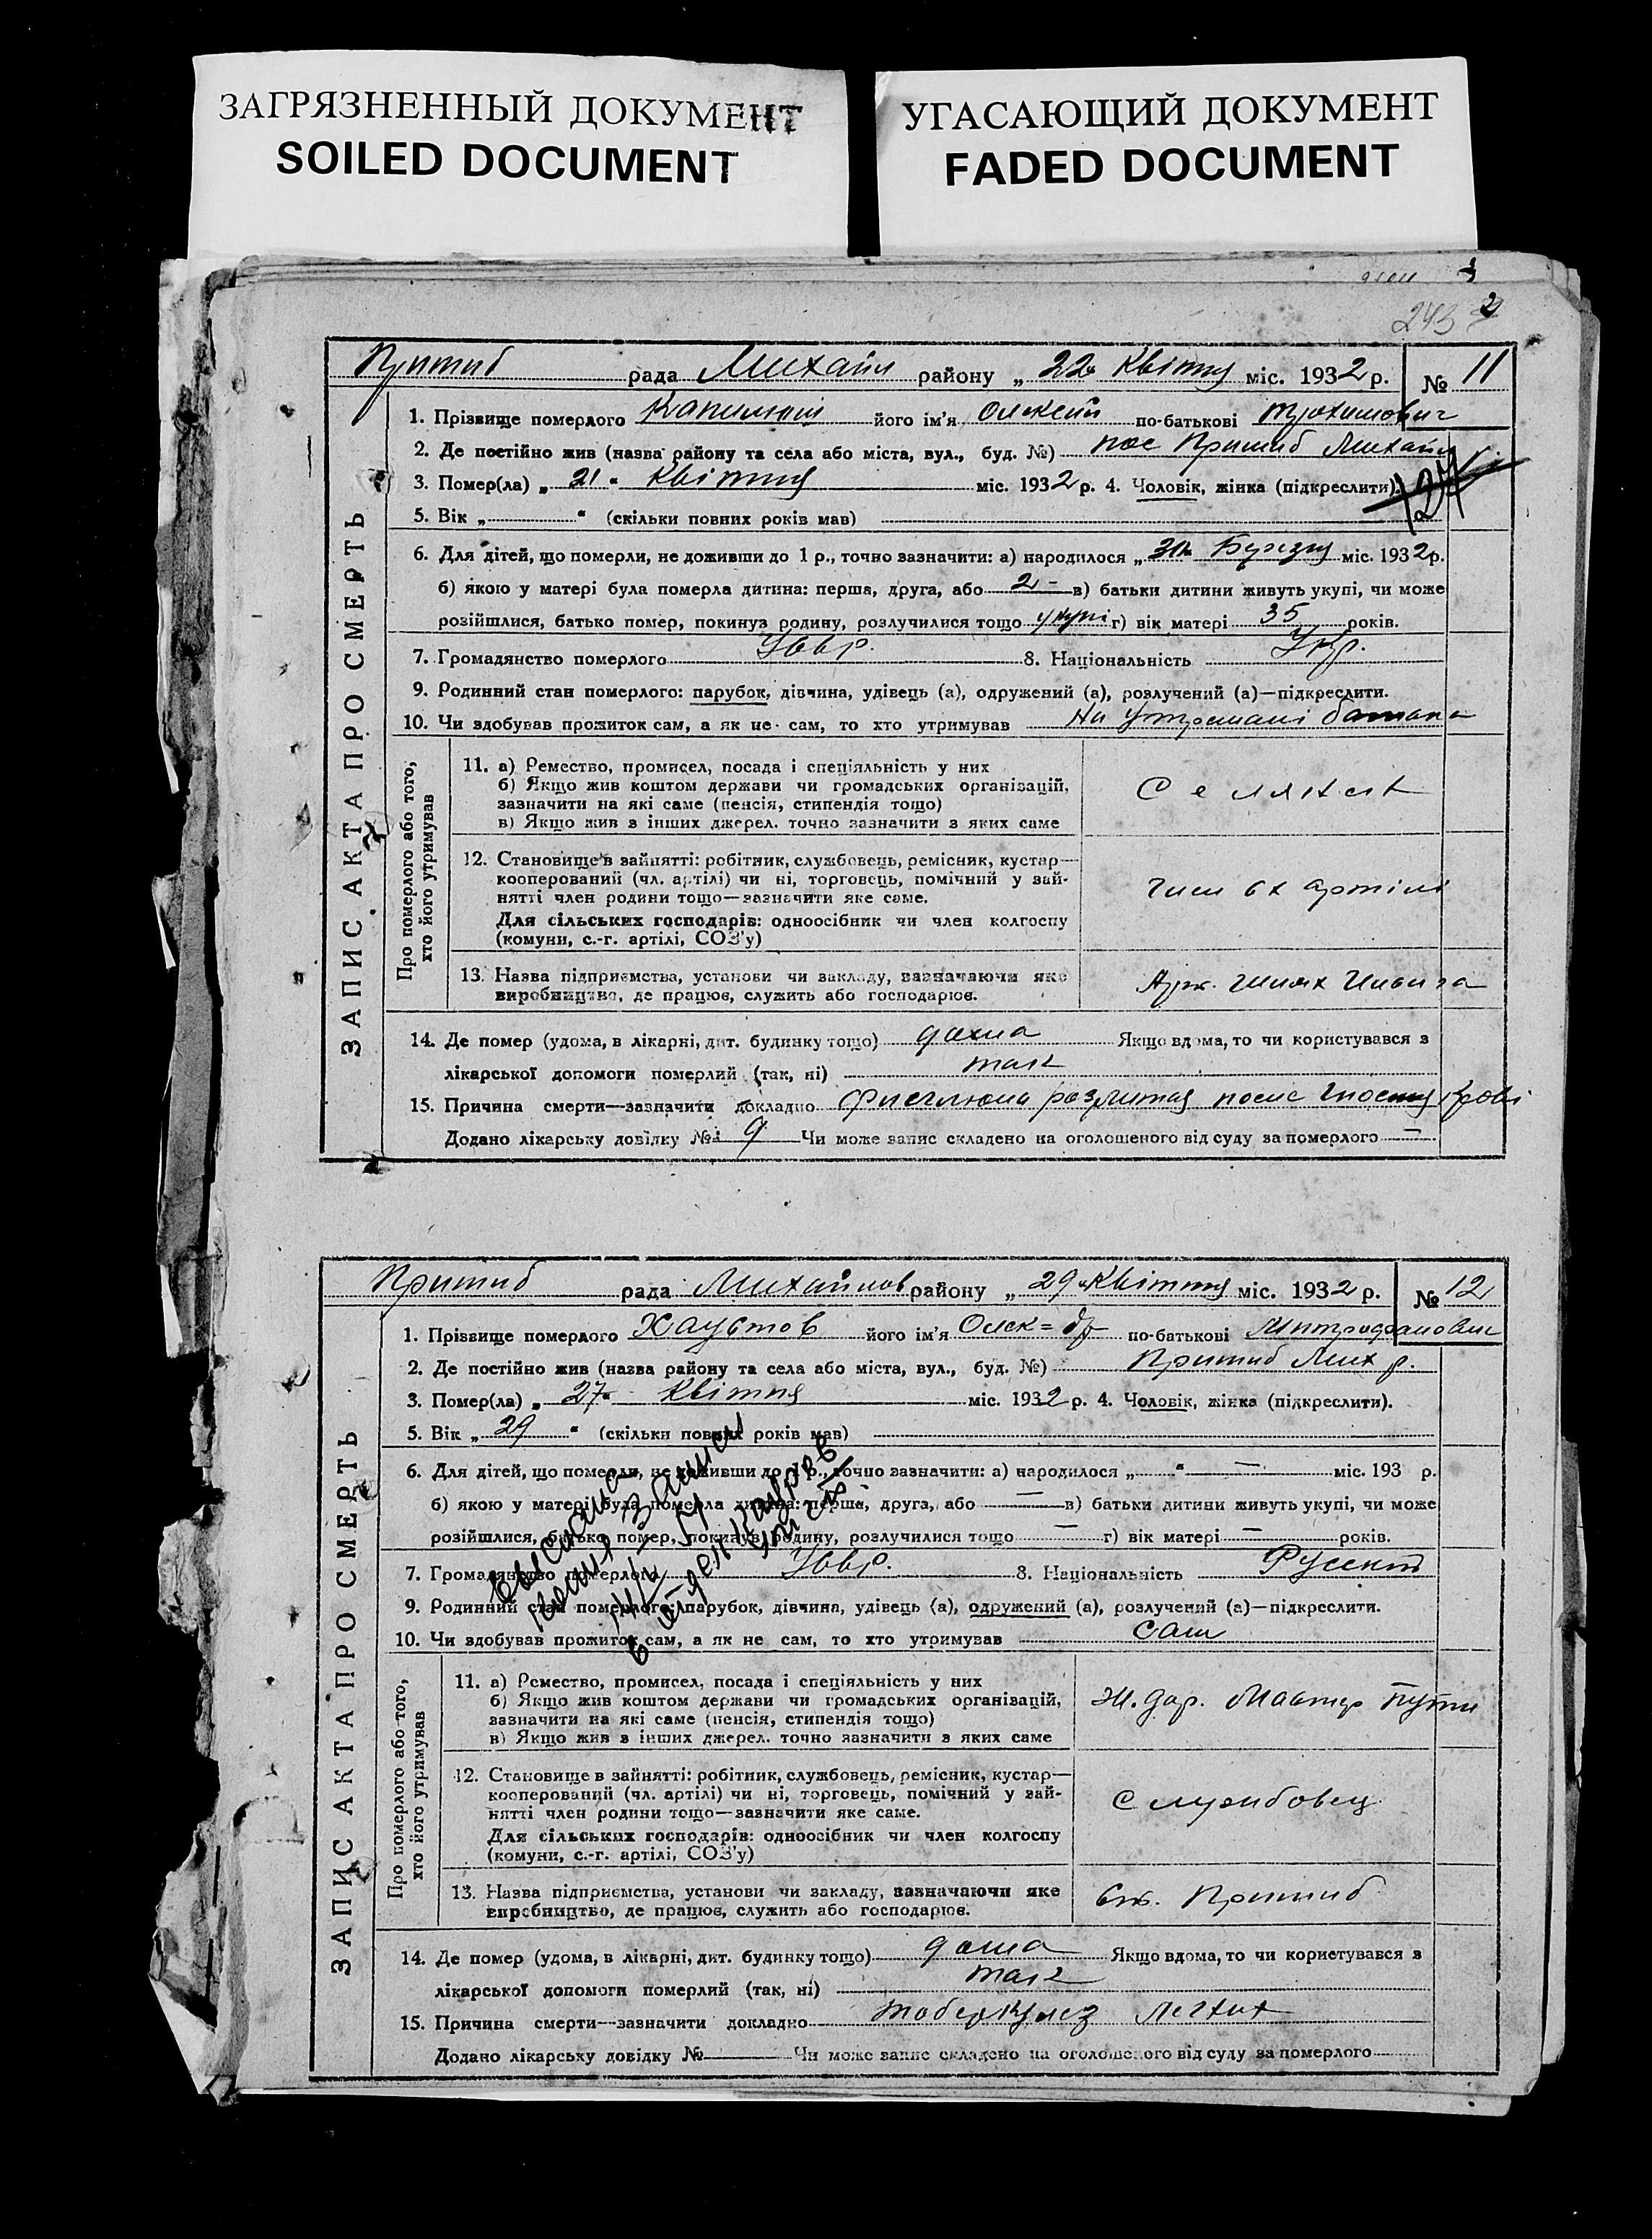 ЗАГРЯЗНЕННЫЙ ДОКУМЕНТ
SOILED DOCUMENT
УГАСАЮЩИЙ ДОКУМЕНТ
FADED DOCUMENT
243
Пришиб рада Михайл району „22" Квітня міс. 1932 р. № 11
ЗАПИС АКТА ПРО СМЕРТЬ
1. Прізвище померлого його ім'я Олексій по-батькові Трохимович
2. Де постійно жив (назва району та села або міста, вул., буд. №) пос Пришиб Михайл
3. Помер(ла) „21" Квітня міс. 1932 р. 4. Чоловік, жінка (підкреслити).
127
5. Вік „ " (скільки повних років мав)
6. Для дітей, що померли, не доживши до 1 р., точно зазначити: а) народилося „30" Березня міс. 1932 р.
б) якою у матері була померла дитина: перша, друга, або 2- в) батьки дитини живуть укупі, чи може
розійшлися, батько помер, покинув родину, розлучилися тощо укупі г) вік матері 35 років.
7. Громадянство померлого УССР. 8. Національність Укр.
9. Родинний стан померлого: парубок, дівчина, удівець (а), одружений (а), розлучений (а)—підкреслити.
10. Чи здобував прожиток сам, а як не сам, то хто утримував На утримані батька
Про померлого або того, хто його утримував
11. а) Ремество, промисел, посада і спеціяльність у них
б) Якщо жив коштом держави чи громадських організацій,
зазначити на які саме (пенсія, стипендія тощо)
в) Якщо жив з інших джерел, точно зазначити з яких саме
Селянин
12. Становище в зайнятті: робітник, службовець, ремісник, кустар—
кооперований (чл. артілі) чи ні, торговець, помічний у зай-
нятті член родини тощо—зазначити яке саме.
Для сільських господарів: одноосібник чи член колгоспу
(комуни, с.-г. артілі, СОЗ'у)
член сх артілі
13. Назва підприємства, установи чи закладу, зазначаючи яке
виробництво, де працює, служить або господарює.
Арт. Шлях Ильича
14. Де помер (удома, в лікарні, дит. будинку тощо) дома Якщо вдома, то чи користувався з
лікарської допомоги померлий (так, ні) так
15. Причина смерти—зазначити докладно Флегмона разлитая после
Додано лікарську довідку № 9 Чи може запис складено на оголошеного від суду за померлого —
Пришиб рада Михайлов району „29" Квітня міс. 1932 р. № 12
ЗАПИС АКТА ПРО СМЕРТЬ
1. Прізвище померлого Хаустов його ім'я Олек=др по-батькові Митрофанович
2. Де постійно жив (назва району та села або міста, вул., буд. №) Пришиб Мих р.
3. Помер(ла) „27" Квітня міс. 1932 р. 4. Чоловік, жінка (підкреслити).
5. Вік „29" (скільки повних років мав)
6. Для дітей, що померли, не доживши до 1 р., точно зазначити: а) народилося „ " — міс. 193 р.
б) якою у матері була померла дитина: перша, друга, або — в) батьки дитини живуть укупі, чи може
розійшлися, батько помер, покинув родину, розлучилися тощо — г) вік матері — років.
Выслана
копия записи
в отдел кадров
7. Громадянство померлого УССР. 8. Національність Русский
9. Родинний стан померлого: парубок, дівчина, удівець (а), одружений (а), розлучений (а)—підкреслити.
10. Чи здобував прожиток сам, а як не сам, то хто утримував Сам
Про померлого або того, хто його утримував
11. а) Ремество, промисел, посада і спеціяльність у них
б) Якщо жив коштом держави чи громадських організацій,
зазначити на які саме (пенсія, стипендія тощо)
в) Якщо жив з інших джерел, точно зазначити з яких саме
Ж. дор. Мастер пути
12. Становище в зайнятті: робітник, службовець, ремісник, кустар—
кооперований (чл. артілі) чи ні, торговець, помічний у зай-
нятті член родини тощо—зазначити яке саме.
Для сільських господарів: одноосібник чи член колгоспу
(комуни, с.-г. артілі, СОЗ'у)
Службовец
13. Назва підприємства, установи чи закладу, зазначаючи яке
виробництво, де працює, служить або господарює.
Ст. Пришиб
14. Де помер (удома, в лікарні, дит. будинку тощо) дома Якщо вдома, то чи користувався з
лікарської допомоги померлий (так, ні) так
15. Причина смерти—зазначити докладно Тоберкулез Легких
Додано лікарську довідку № Чи може запис складено на оголошеного від суду за померлого